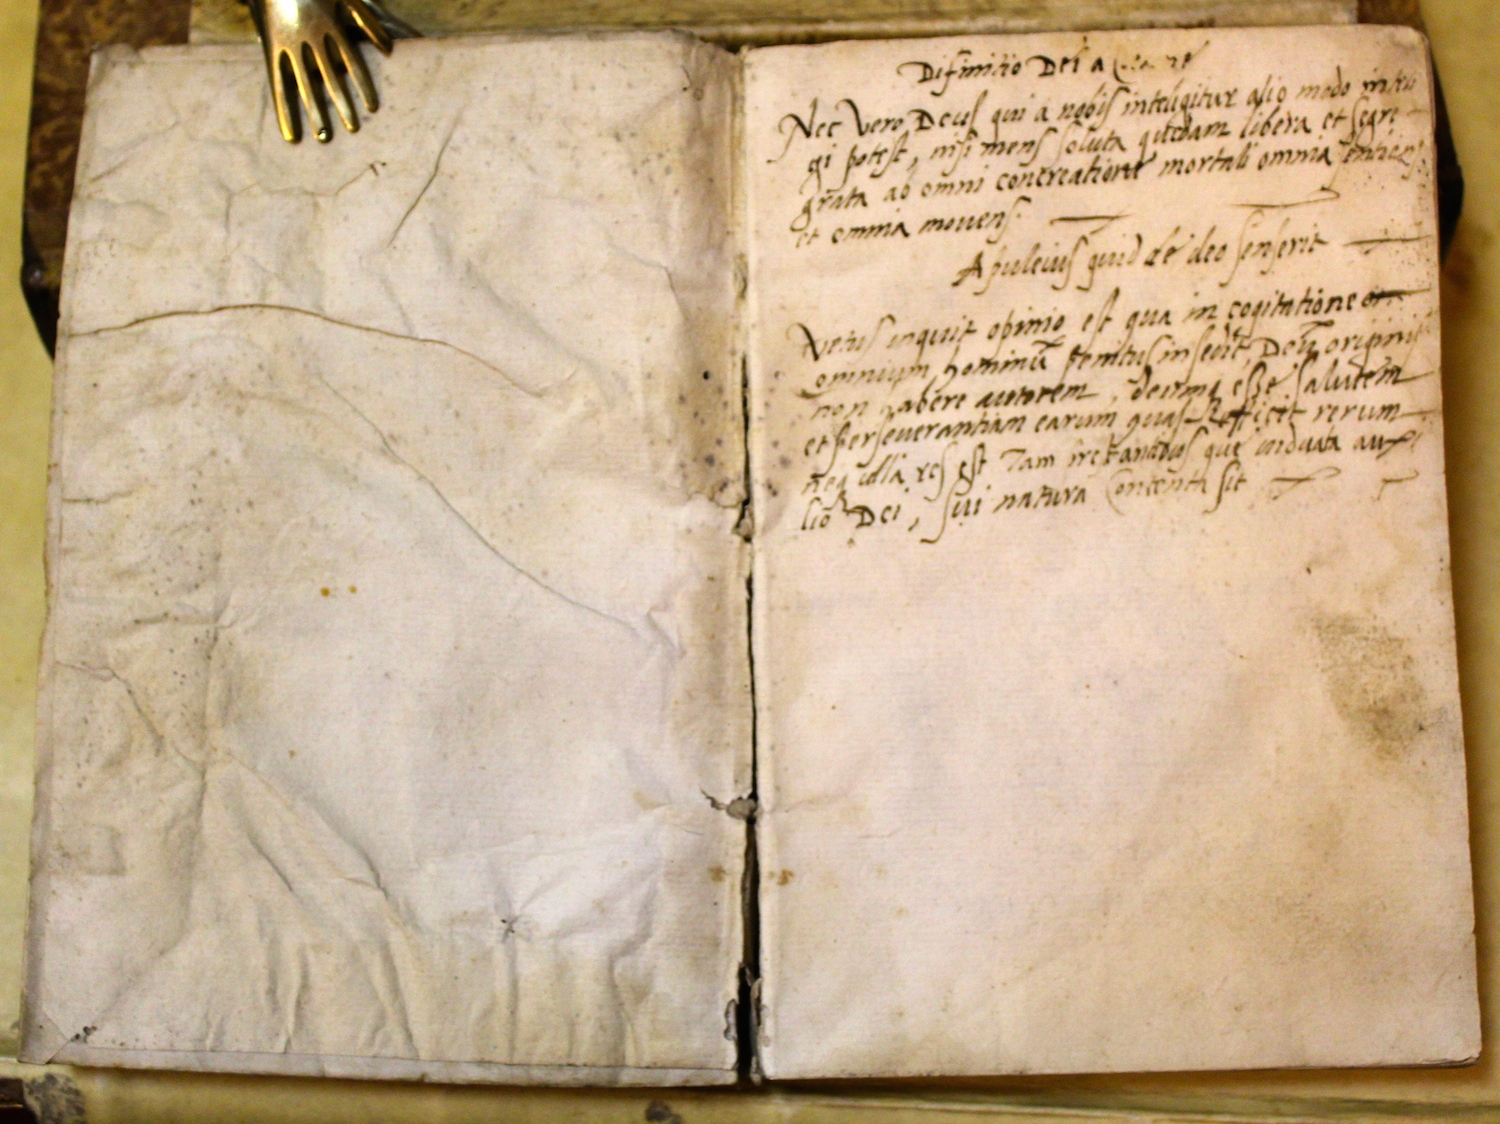 Difinitio Dei a
Nec vero Deus qui a nobis inteligitur alio modo inteli
gi potest, nisi mens soluta quedam libera et segre
grata ab omni concreatione mortali omnia sentiens
et omnia movens.
Apuleius quid de deo senserit
Vetus inquit opinio est qua in cogitatione
omnium hominū penitus insedit, Deū originis
non habere autorem, deumq esse salutem
et perseverantiam earum quas rerum
neq ulla res est Tam que viduata auxi
lio Dei, sui natura Contenta sit